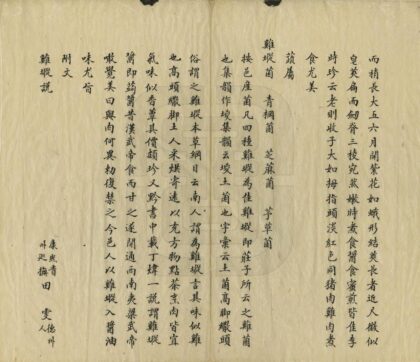 而稍長大五六月開紫花如蛾形結莢長者近尺微似
皂莢扁而劒脊三稜宛然嫩時煮食醬食蜜煎皆佳李
時珍云老則收子大如拇指頭淡紅色同猪肉雞肉煮
食尤美
蔬屬
雞㙡菌 青榈菌 芝蔴菌 茅草菌
按邑產菌凡四種雞㙡為佳雞㙡即莊子所云之雞菌
也集韻作㙡集韻云㙡土菌也字彙云土菌高脚繖頭
俗謂之雞㙡本草綱目云南人謂為雞㙡言其味似雞
也高頭繖脚土人采烘寄遠以充方物點茶烹肉皆宜
氣味似香蕈其價頗珍又黔書中載丁煒一說謂雞㙡
醬即蒟醬昔漢武帝食而甘之遂開通西南夷梁武帝
啖覺美曰與肉何異勅復禁之今邑人以雞㙡入醬油
味尤旨
附文
雞㙡說
康熙貴州巡撫田 雯 德州人